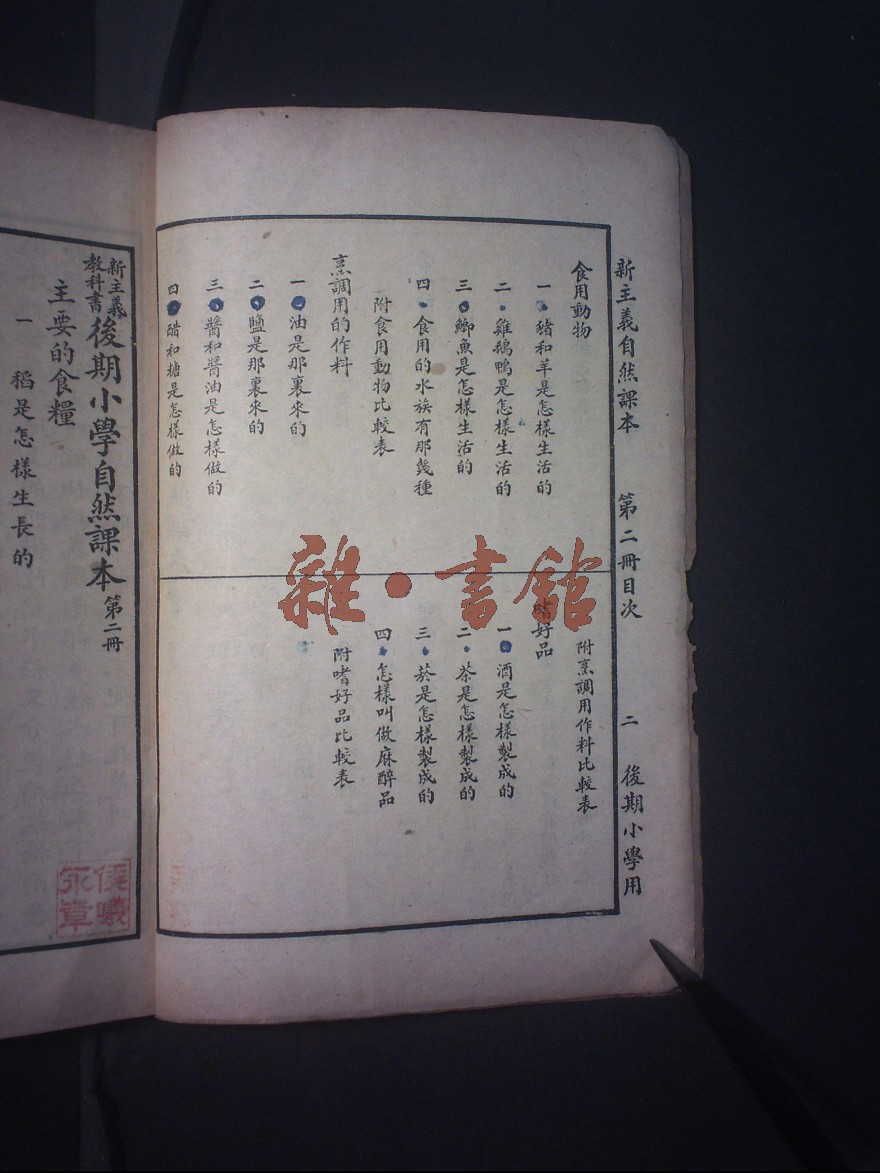 新主義自然課本　第二冊目次　二　後期小學用
食用動物
一　豬和羊是怎樣生活的
二　雞鵝鴨是怎樣生活的
三　鯽魚是怎樣生活的
四　食用的水族有那幾種
附食用動物比較表
烹調用的作料
一　油是那裏來的
二　鹽是那裏來的
三　醬和醬油是怎樣做的
四　醋和糖是怎樣做的
附烹調用作料比較表
嗜好品
一　酒是怎樣製成的
二　茶是怎樣製成的
三　菸是怎樣製成的
四　怎樣叫做麻醉品
附嗜好品比較表
新主義教科書　後期小學自然課本　第二冊
主要的食糧
一　稻是怎樣生長的
雜·書館